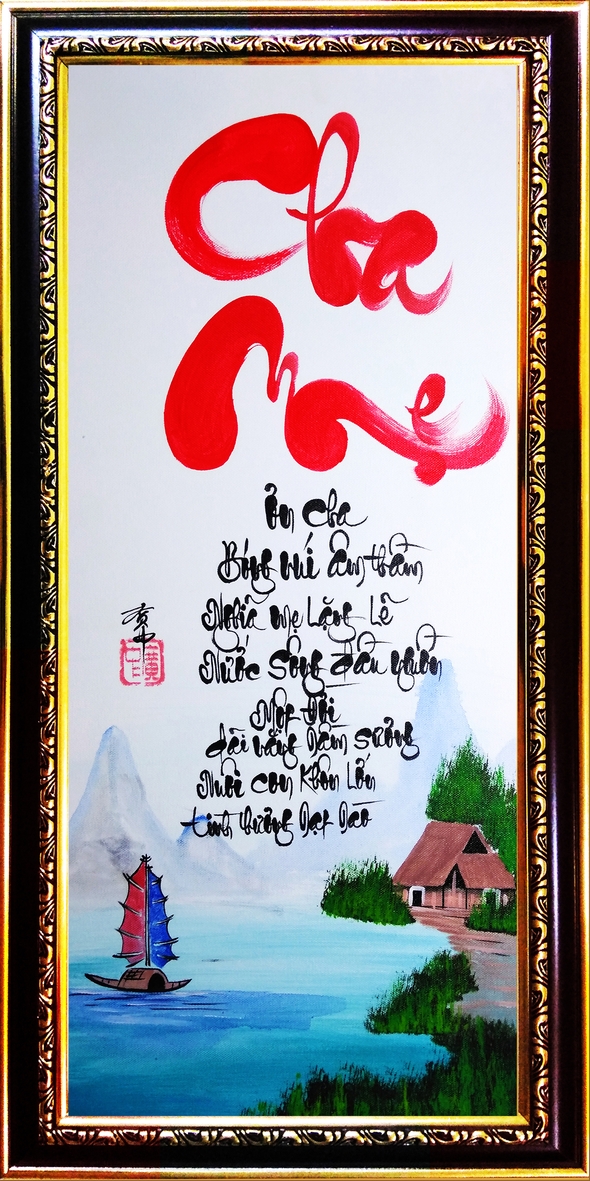 Cha
Mẹ
Ơn cha
Bóng núi âm thầm
Nghĩa mẹ Lặng Lẽ
Nước Sông đầu nguồn
Một đời
dãi nắng dầm sương
Nuôi con Khôn Lớn
tình thương dạt dào